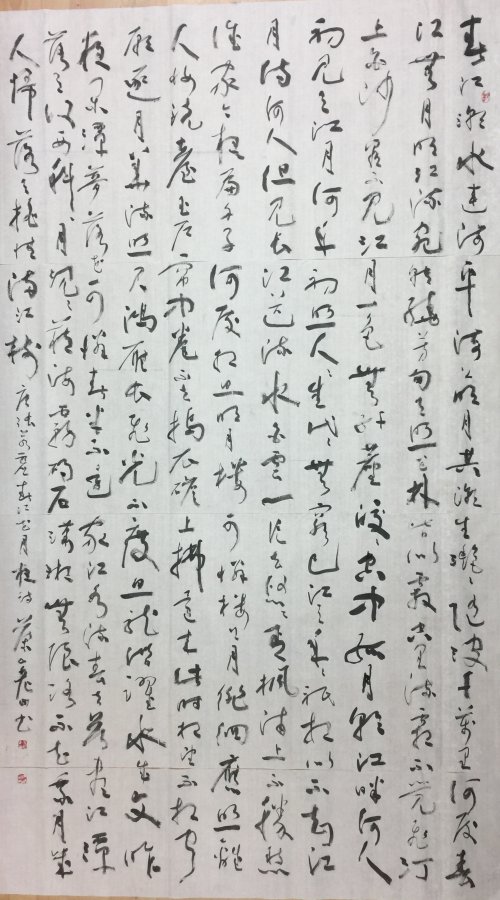 春江潮水連海平海上明月共潮生灩灩隨波千萬里何處春
江無月明江流宛轉繞芳甸月照花林皆似霰空里流霜不覺飛汀
上白沙看不見江天一色無纖塵皎皎空中孤月輪江畔何人
初見月江月何年初照人人生代代無窮已江月年年祇相似不知江
月待何人但見長江送流水白雲一片去悠悠青楓浦上不勝愁
誰家今夜扁舟子何處相思明月樓可憐樓上月徘徊應照離
人妝鏡臺玉户簾中卷不去搗衣砧上拂還來此時相望不相聞
願逐月華流照君鴻雁長飛光不度魚龍潛躍水成文昨
夜閑潭夢落花可憐春半不還家江水流春去欲盡江潭
落月復西斜斜月沉沉藏海霧碣石瀟湘無限路不知乘月幾
人歸落月搖情滿江樹 唐張若虛春江花月夜詩 蔡 書